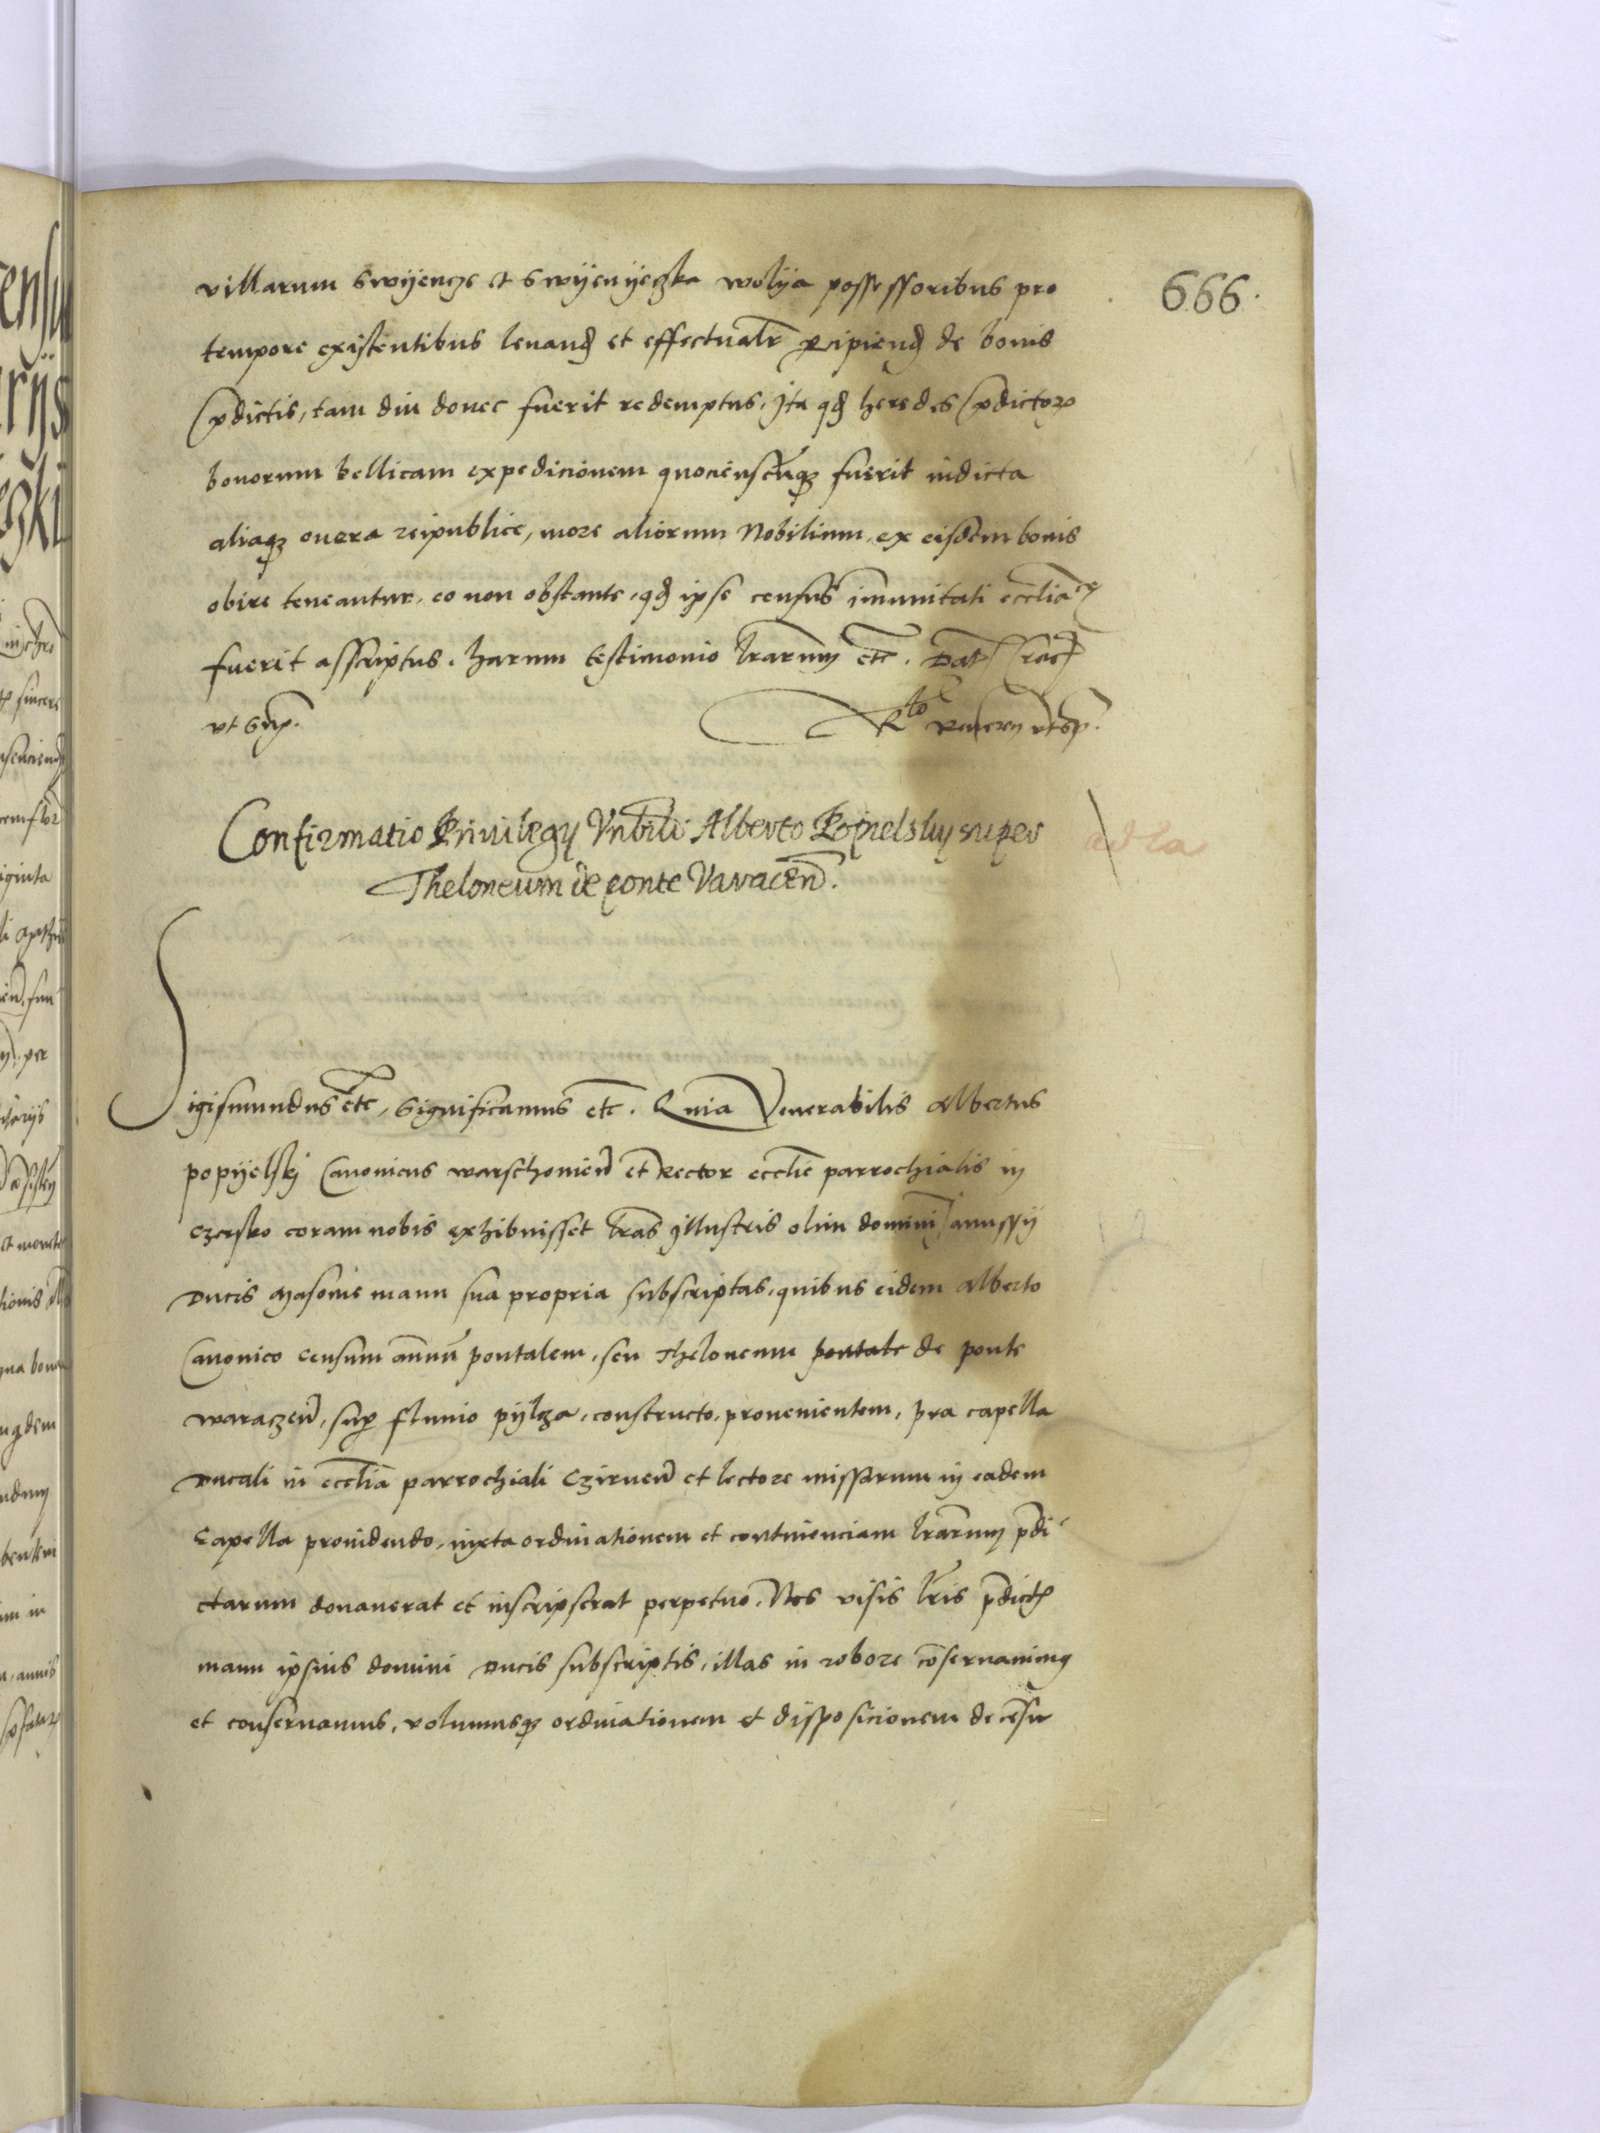 666.
villarum Swyencze et Swyenyeczka wolya possessoribus pro
tempore existentibus levand et effectualr ꝑcipiend de bonis
p̄dictis, tam diu donec fuerit redemptus, Ita qd heredes p̄dictoꝝ
bonorum bellicam expedicionem quocienscunqꝫ fuerit indicta
aliaqꝫ onera reipublice, more aliorum Nobilium, ex eisdem bonis
obire teneantur, eo non obstante, qd ipse census īmunitati ecclīace
fuerit asscriptus. harum testimonio l̄rarum etc. Dat Crac
vt Sup̄.
Rlo R vtsp̄.
Confirmatio Privilegÿ Vn̄bili Alberto Popielskÿ super
Theloneum de ponte Varacen̄.
Sigismundus etc, Significamus etc. Quia Venerabilis Albertus
popyelskj Canonicus warschouien̄ et Rector ecclīe parrochialis in
Czersko coram nobis exhibuisset l̄ras Illustris olim domini Janussÿ
Ducis Masouie manu sua propria subscriptas, quibus eidem Alberto
Canonico censum ānnū pontalem, seu Theloneum pontale de ponte
waraczen̄, sup̄ fluuio pylcza, constructo, prouenientem, pra capella
Ducali in ecclīa parrochiali Czirnen̄ et lectore missarum in eadem
Capella prouidendo, iuxta ordinationem et continenciam l̄rarum p̄di
ctarum donauerat et inscripserat perpetuo. Nos visis l̄ris p̄dictis
manu ipsius domini Ducis subscriptis, illas in robore cōseruauimus
et conseruamus, volumusqꝫ ordinationem et disposicionem de cēsu